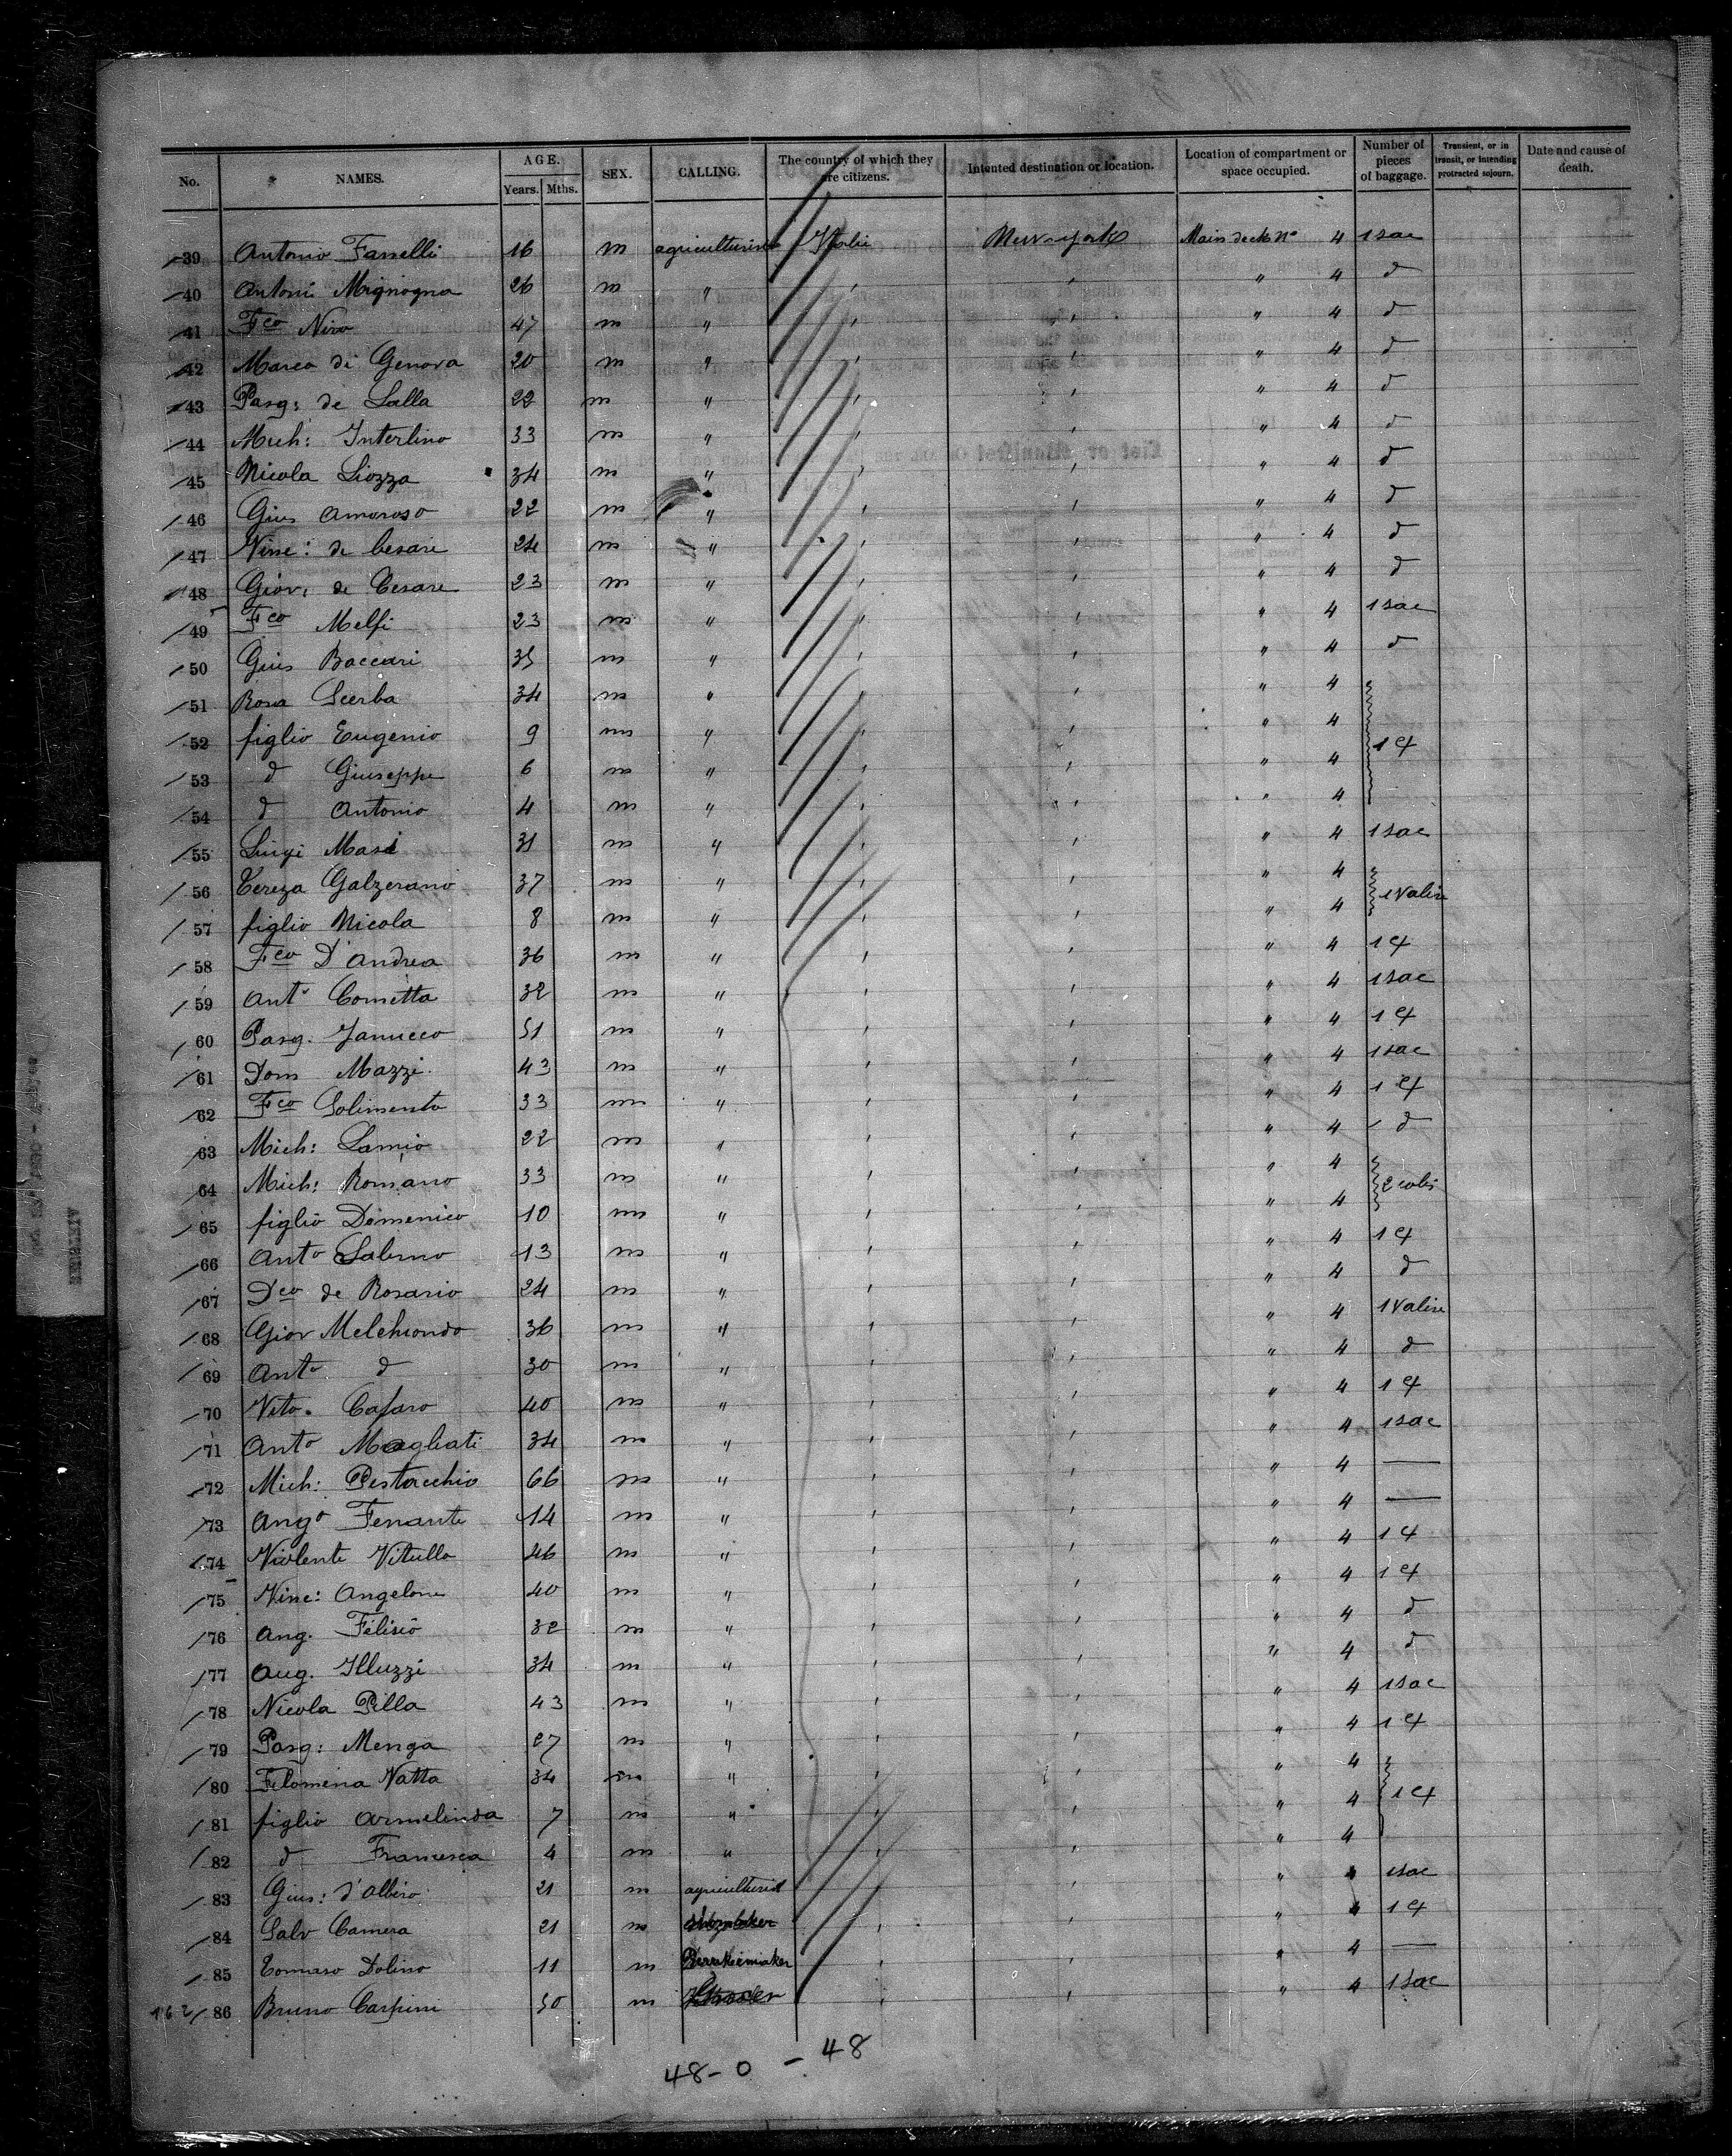 No. NAMES. AGE. Years. Mths. SEX. CALLING. The country of which they are citizens. Intented destination or location. Location of compartment or space occupied. Number of pieces of baggage. Transient, or in transit, or intending protracted sojourn. Date and cause of death.
39 Antonio Fanelli 16 m agriculturist Italie New-york Main deck No 4 1 sac
40 Antoni Mignogna 26 m " ' ' " 4 d
41 Fco Niro 47 m " ' ' " 4 d
42 Marco di Genova 20 m " ' ' " 4 d
43 Pasq: de Lalla 22 m " ' ' " 4 d
44 Mich: Interlino 33 m " ' ' " 4 d
45 Nicola Liozza 34 m " ' ' " 4 d
46 Gius Amoroso 22 m " ' ' " 4 d
47 Vinc: de Cesare 24 m " ' ' " 4 d
48 Giov: de Cesare 23 m " ' ' " 4 d
49 Fco Melfi 23 m " ' ' " 4 1 sac
50 Gius Baccari 35 m " ' ' " 4 d
51 Rosa Scerba 34 m " ' ' " 4
52 figlio Eugenio 9 m " ' ' " 4 1
53 d Giuseppe 6 m " ' ' " 4
54 d Antonio 4 m " ' ' " 4
55 Luigi Masi 31 m " ' ' " 4 1 sac
56 Tereza Galzerano 37 m " ' ' " 4 1 Valise
57 figlio Nicola 8 m " ' ' " 4
58 Fco D'Andrea 36 m " ' ' " 4 1
59 Anto Cometta 32 m " ' ' " 4 1 sac
60 Pasq. Janucco 51 m " ' ' " 4 1
61 Dom Mazzi. 43 m " ' ' " 4 1 sac
62 Fco Solimento 33 m " ' ' " 4 1
63 Mich: Lamio 22 m " ' ' " 4 d
64 Mich: Romano 33 m " ' ' " 4 2 colis
65 figlio Domenico 10 m " ' ' " 4
66 Anto Salerno 13 m " ' ' " 4 1
67 Dco de Rosario 24 m " ' ' " 4 d
68 Giov Melchiondo 36 m " ' ' " 4 1 Valise
69 Anto d 30 m " ' ' " 4 d
70 Vito. Cafaro 40 m " ' ' " 4 1
71 Anto Magliati 34 m " ' ' " 4 1 sac
72 Mich: Pistacchio 66 m " ' ' " 4 —
73 Ango Ferrante 14 m " ' ' " 4 —
74 Violente Vitullo 46 m " ' ' " 4 1
75 Vinc: Angelone 40 m " ' ' " 4 1
76 Ang. Felisio 32 m " ' ' " 4 d
77 Aug. Illuzzi 34 m " ' ' " 4 d
78 Nicola Pilla 43 m " ' ' " 4 1 sac
79 Pasq: Menga 27 m " ' ' " 4 1
80 Filomena Natta 34 m " ' ' " 4
81 figlio Armelinda 7 m " ' ' " 4 1
82 d Francesca 4 m " ' ' " 4
83 Gius: d'Albero 21 m agriculturist ' ' " 4 1 sac
84 Salv Camera 21 m ' ' " 4 1
85 Tomaso Dolino 11 m ' ' " 4 —
162 86 Bruno Carpini 50 m ' ' " 4 1 sac
48-0 - 48